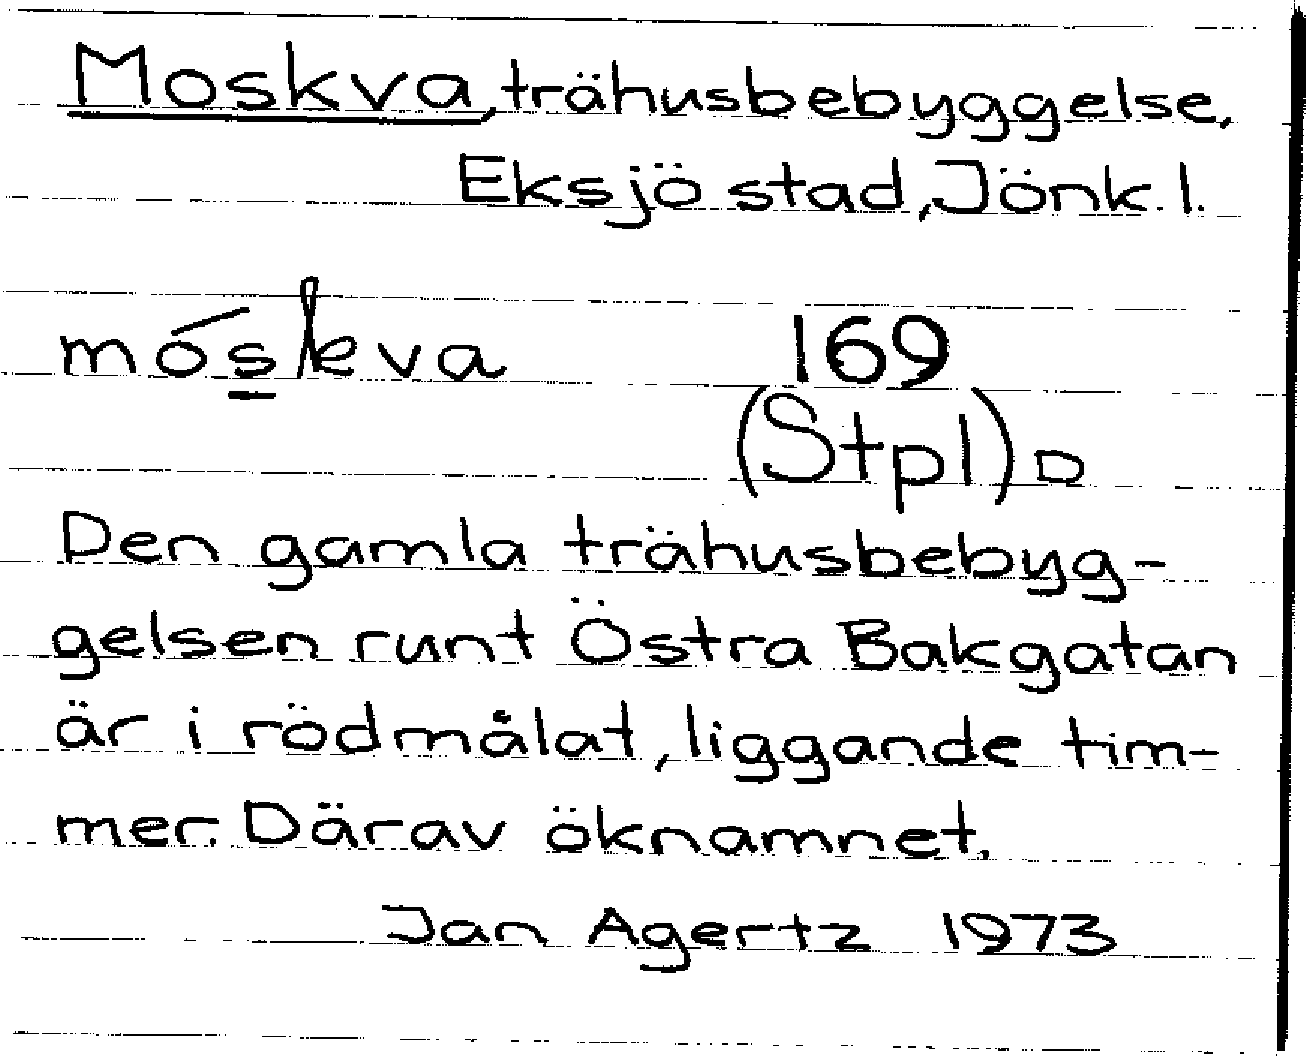 Moskva, trähusbebyggelse,
Eksjö stad, Jönk. l.
móskva 169
(Stpl) D
Den gamla trähusbebyg-
gelsen runt Östra Bakgatan
är i rödmålat, liggande tim-
mer. Därav öknamnet.
Jan Agertz 1973